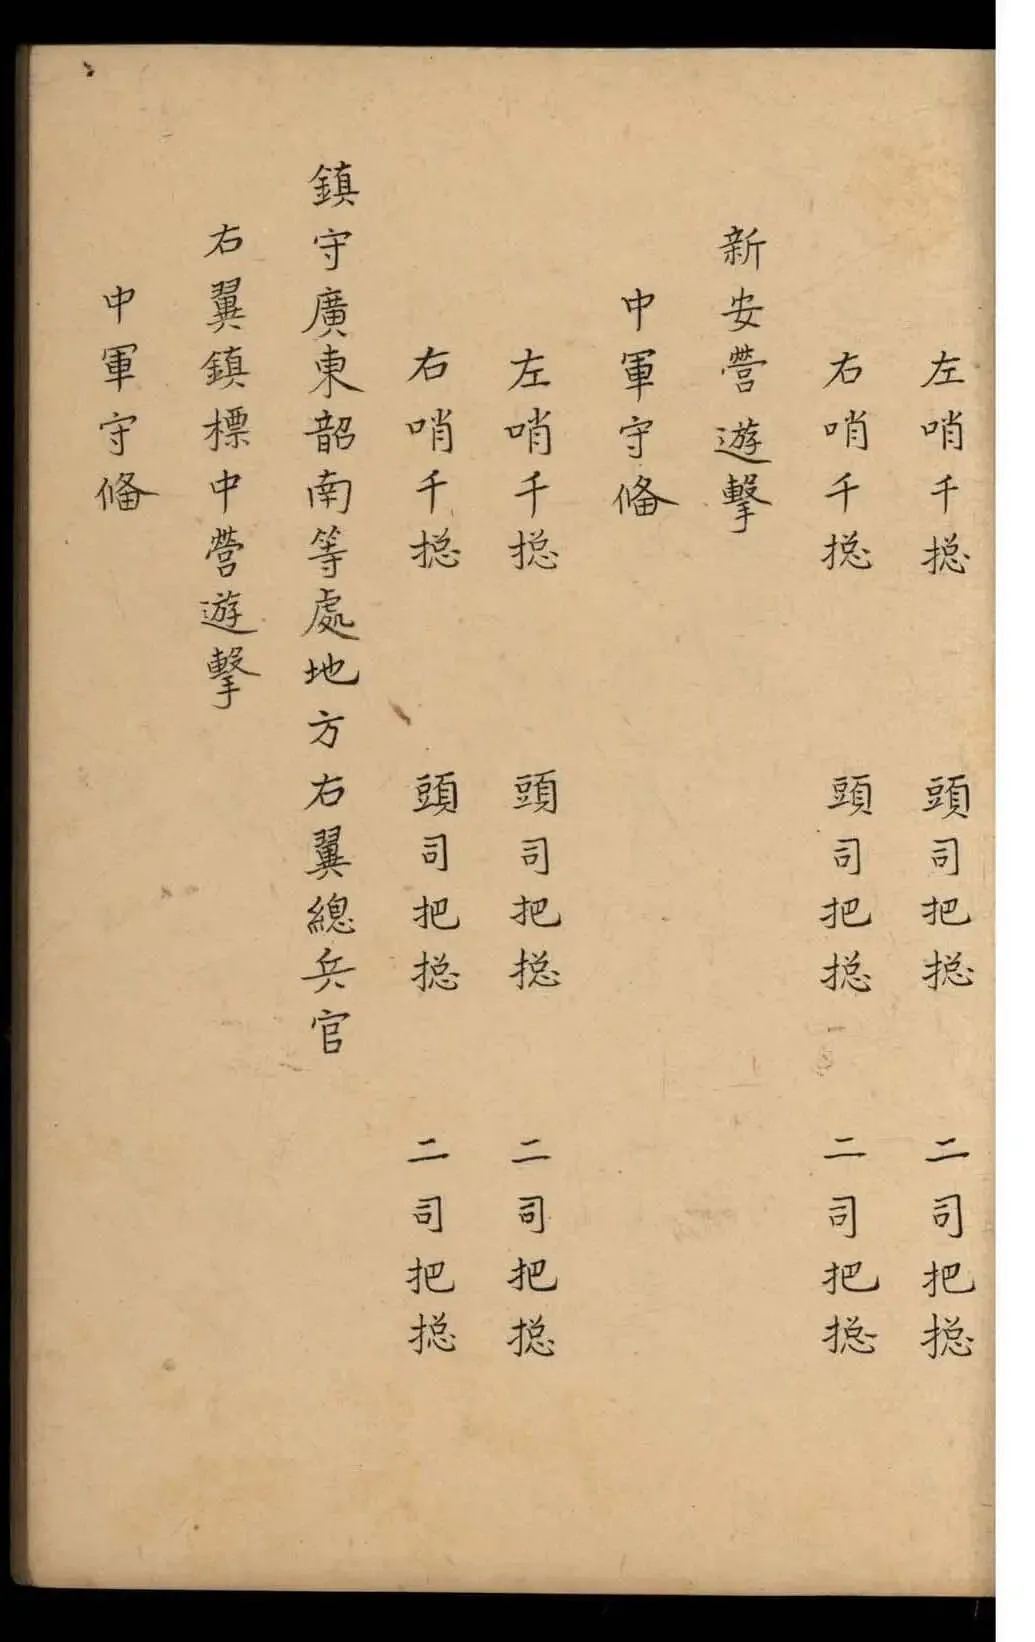 左哨千摠 頭司把摠 二司把摠
右哨千摠 頭司把摠 二司把摠
新安營遊擊
中軍守俻
左哨千摠 頭司把摠 二司把摠
右哨千摠 頭司把摠 二司把摠
鎮守廣東韶南等處地方右翼總兵官
右翼鎮標中營遊擊
中軍守俻